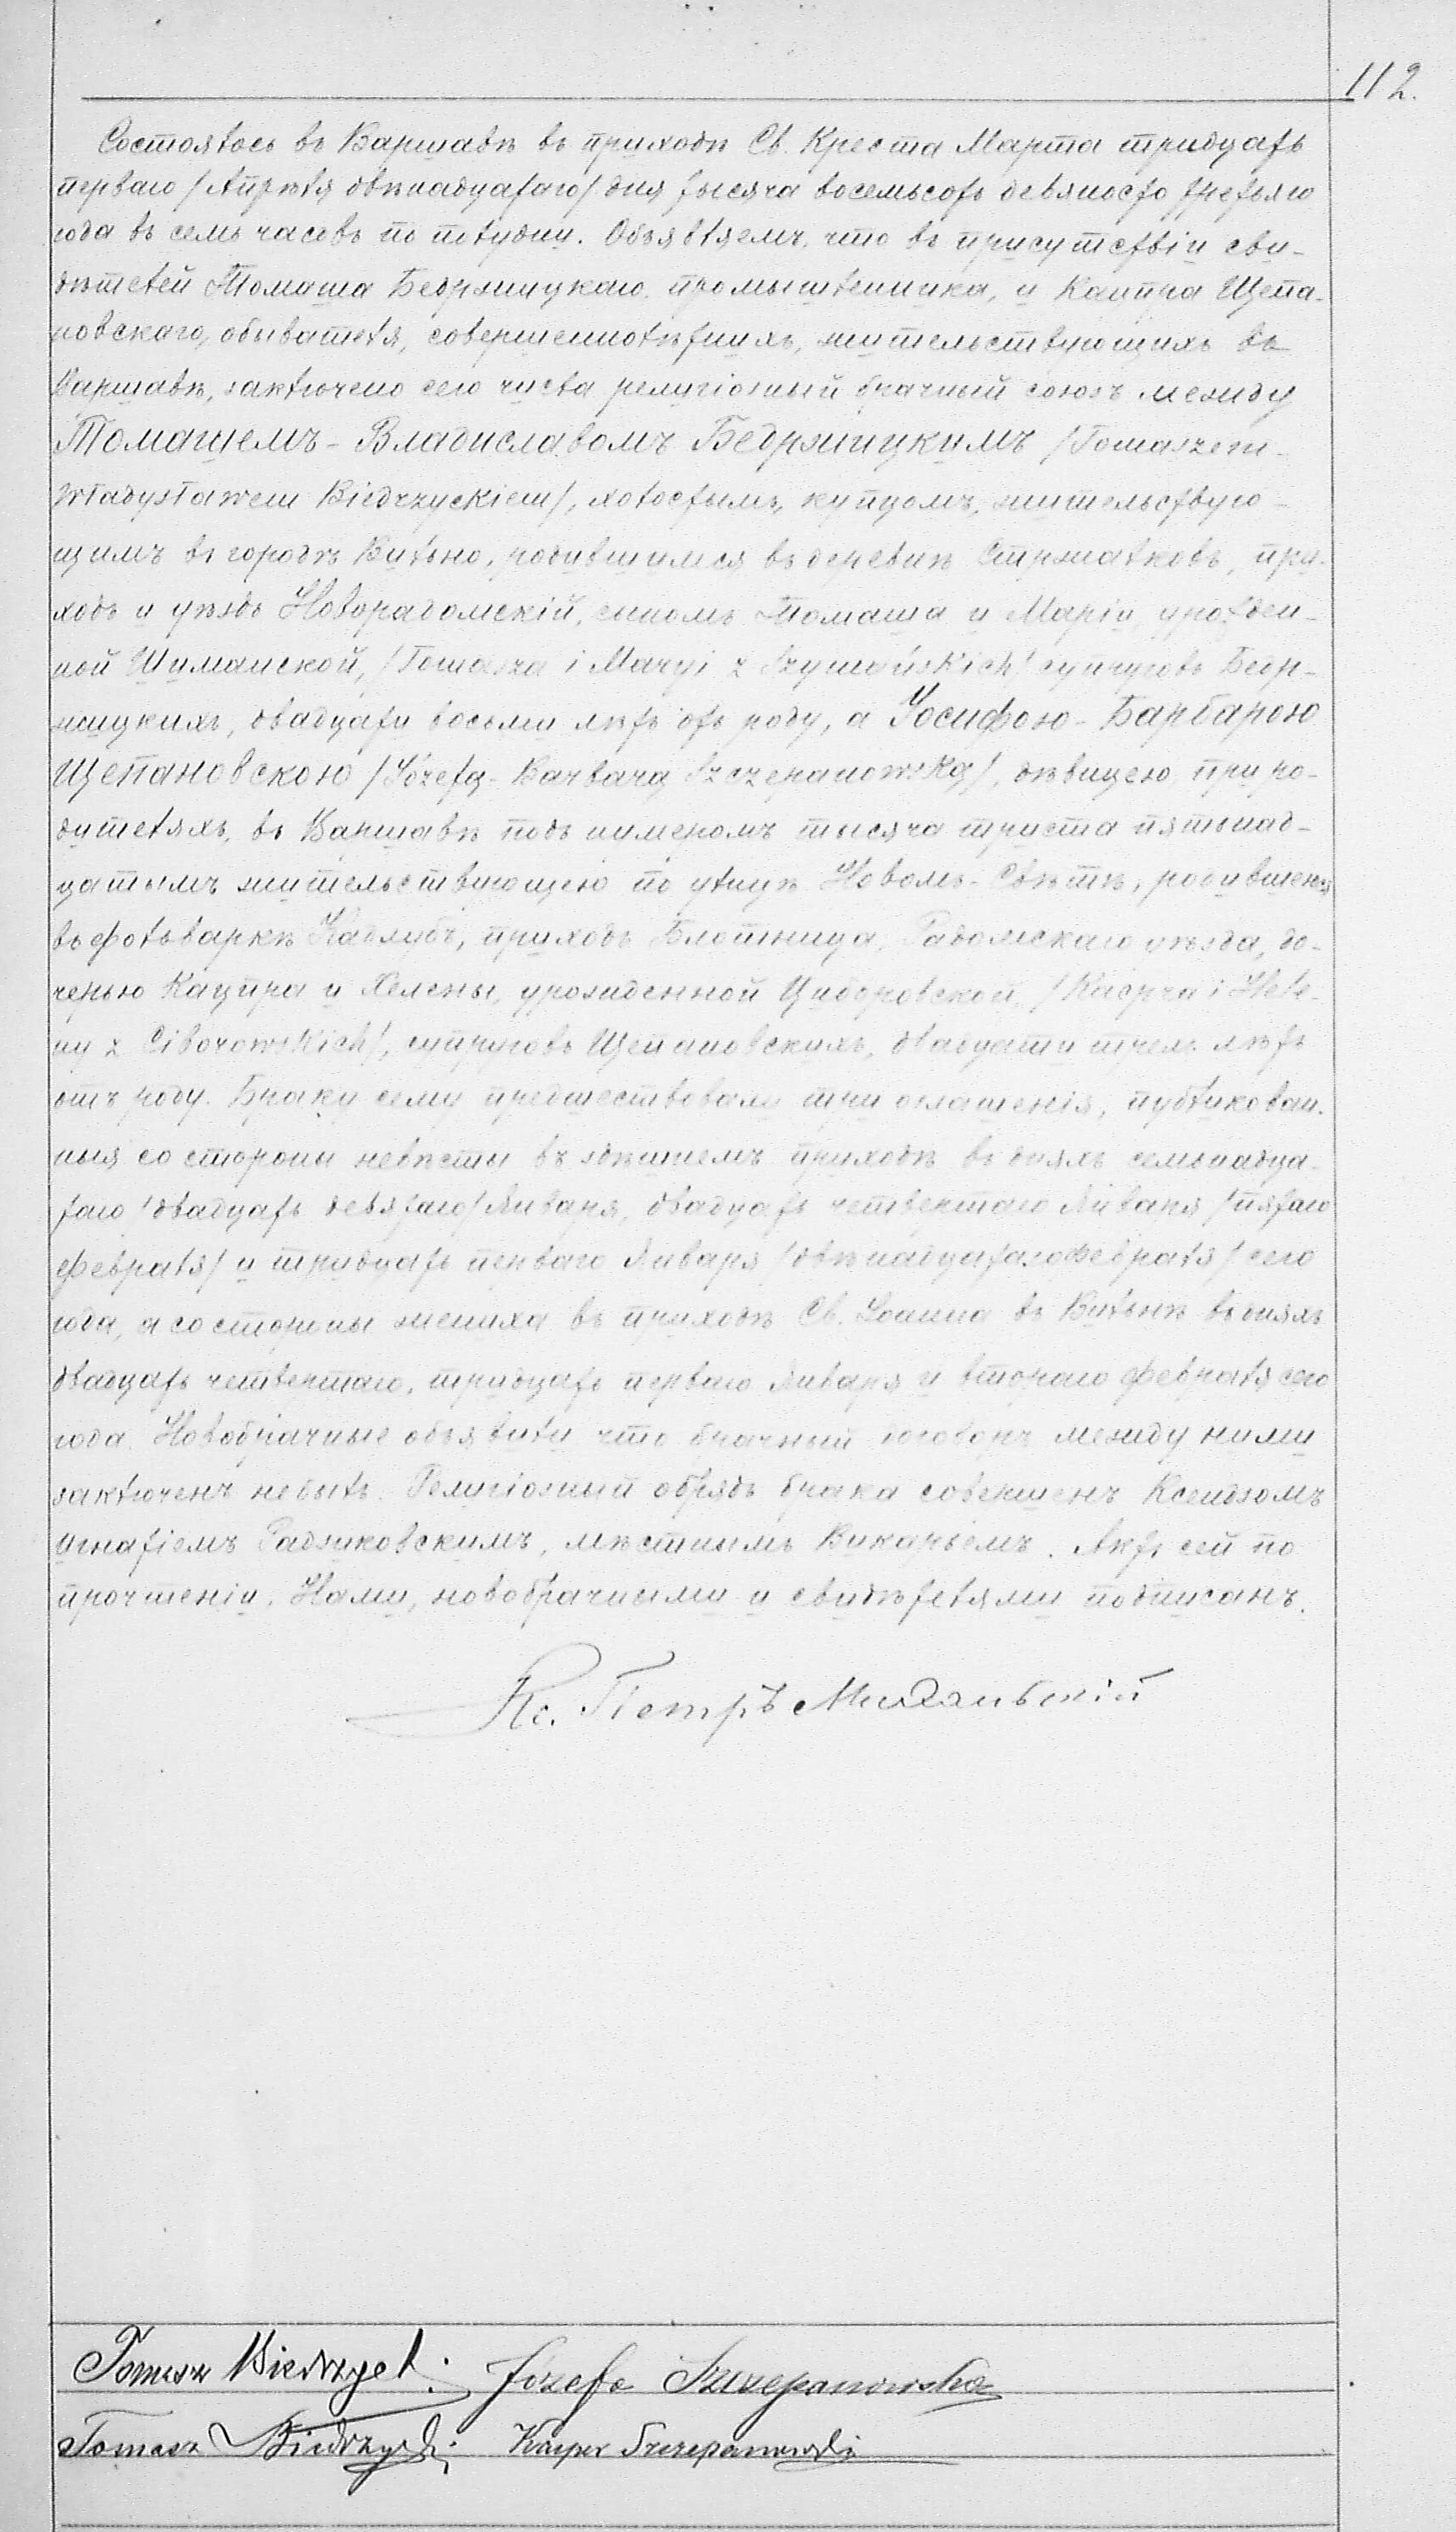 112.
Состоялось въ Варшавѣ въ приходѣ Св. Креста Марта тридцать
перваго /Апрѣля двѣнадцатаго/ дня тысяча восемьсотъ девяносто третьяго
года въ семь часовъ по полудни. Объявляемъ, что въ присутствіи сви-
дѣтелей Томаша Бедржицкаго, промышленника, и Кацпра Щепа-
новскаго, обывателя, совершеннолѣтнихъ, жительствующихъ въ
Варшавѣ, заключено сего числа религіозный брачный союзъ между
Томашемъ-Владиславомъ Бедржицкимъ /Tomaszem-
Władysławem Biedrzyckiem/, холостымъ, купцомъ, жительствую-
щимъ въ городѣ Вильно, родившимся въ деревнѣ Стржалковъ, при-
ходъ и уѣздъ Новорадомскій, сыномъ Томаша и Маріи, урожден-
ной Шиманской, /Tomasza i Maryi z Szymańskich/ супруговъ Бедр-
жицкихъ, двадцати восьми лѣтъ отъ роду, а Іосифою-Барбарою
Щепановскою /Józefą-Barbarą Szczepanowską/, дѣвицею, при ро-
дителяхъ, въ Варшавѣ подъ нумеромъ тысяча триста пятынад-
цатымъ жительствующею по улицѣ Новомъ-Свѣтѣ, родившеюся
въ фольваркѣ Кадлубъ, приходъ Блотница, Радомскаго уѣзда, до-
черью Кацпра и Хелены, урожденной Циборовской, /Kacpra i Hele-
ny z Ciborowskich/, супруговъ Щепановскихъ, двадцати трехъ лѣтъ
отъ роду. Браку сему предшествовали три оглашенія, публикован-
ныя со стороны невѣсты въ здѣшнемъ приходѣ въ дняхъ семьнадца-
таго /двадцать девятаго/ Января, двадцать четвертаго Января /пятаго
Февраля/ и тридцать перваго Января /двѣнадцатаго Февраля/ сего
года, а со стороны жениха въ приходѣ Св. Іоанна въ Вильнѣ въ дняхъ
двадцать четвертаго, тридцать перваго Января и втораго Февраля сего
года. Новобрачные объявили что брачный договоръ между ними
заключенъ небылъ. Религіозный обрядъ брака совершенъ Ксендзомъ
Игнатіемъ Радзиковскимъ, мѣстнымъ Викарьемъ. Актъ сей по
прочтеніи, Нами, новобрачными и свидѣтелями подписанъ.
Кс. Петръ
Tomasz Biedrzycki Józefa Szczepanowska
Tomasz Biedrzycki Kacper Szczepanowski